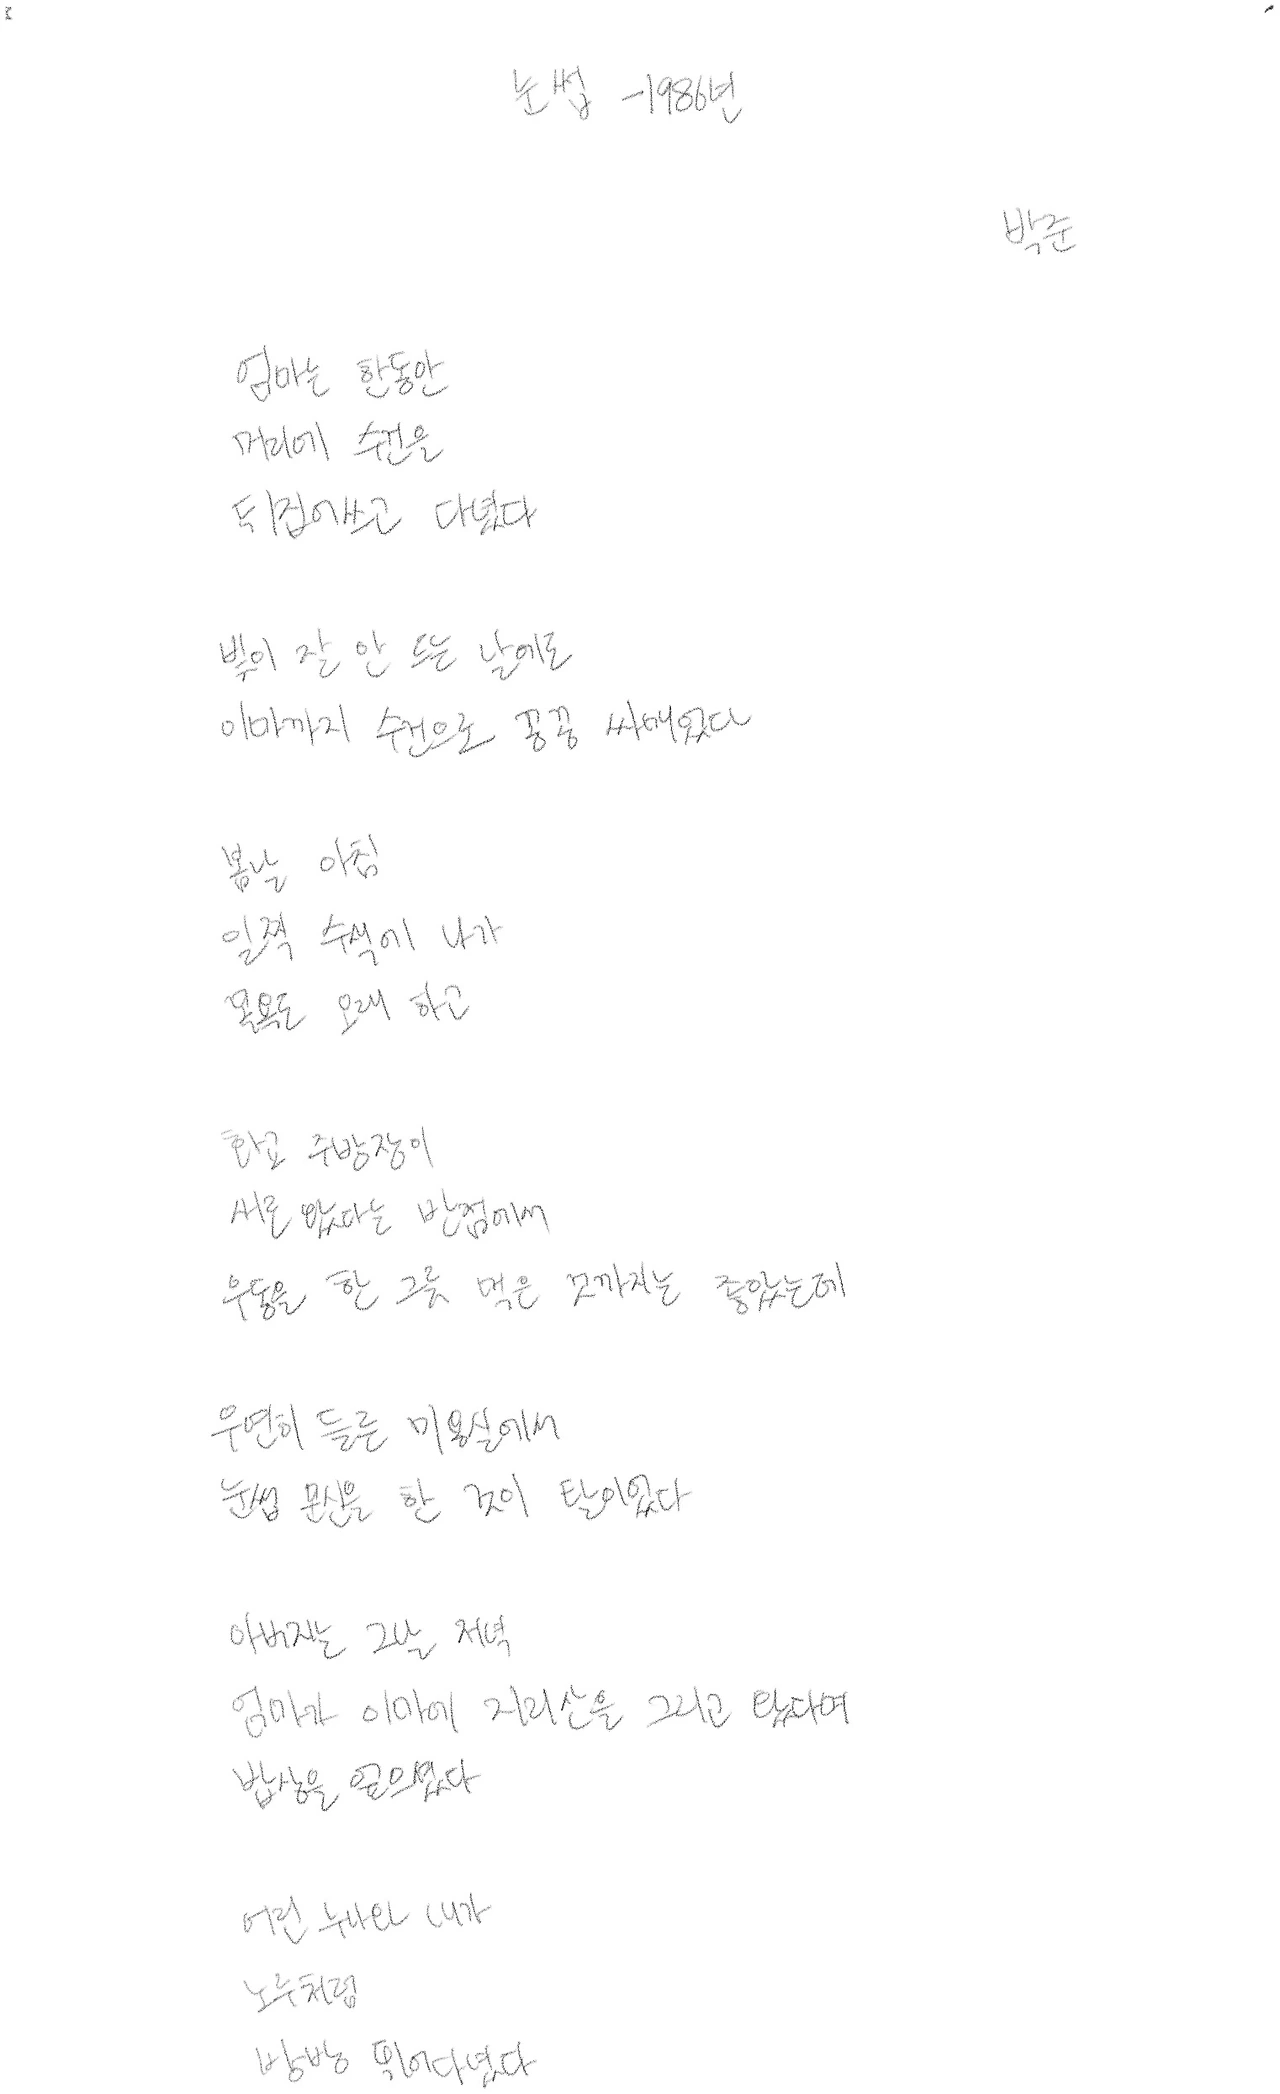 눈썹 -1986년
박준
엄마는 한동안
머리에 수건을
뒤집어쓰고 다녔다
빛이 잘 안 드는 날에도
이마까지 수건으로 꽁꽁 싸매었다
봄날 아침
일찍 수색에 나가
목욕도 오래 하고
화교 주방장이
새로 왔다는 반점에서
우동을 한 그릇 먹은 것까지는 좋았는데
우연히 들른 미용실에서
눈썹 문신을 한 것이 탈이었다
아버지는 그날 저녁
엄마가 이마에 지리산을 그리고 왔다며
밥상을 엎으셨다
어린 누나와 내가
노루처럼
방방 뛰어다녔다